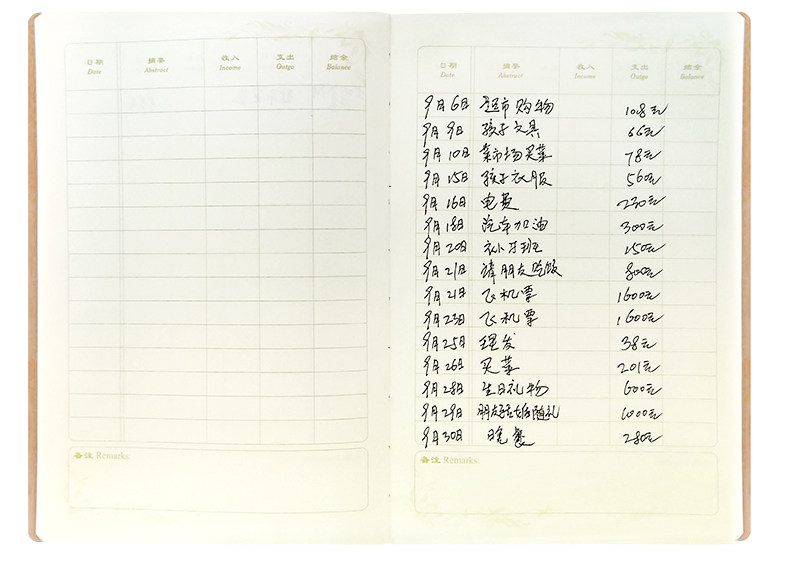 日期 摘要 收入 支出 结余
Date Abstract Income Outgo Balance
备注 Remarks:
日期 摘要 收入 支出 结余
Date Abstract Income Outgo Balance
9月6日 超市购物 108元
9月9日 孩子文具 66元
9月10日 菜市场买菜 78元
9月15日 孩子衣服 560元
9月16日 电费 230元
9月18日 汽车加油 300元
9月20日 补牙 150元
9月21日 请朋友吃饭 800元
9月21日 飞机票 1600元
9月23日 飞机票 1600元
9月25日 理发 38元
9月26日 买菜 201元
9月28日 生日礼物 600元
9月29日 朋友结婚随礼 1000元
9月30日 晚餐 280元
备注 Remarks: